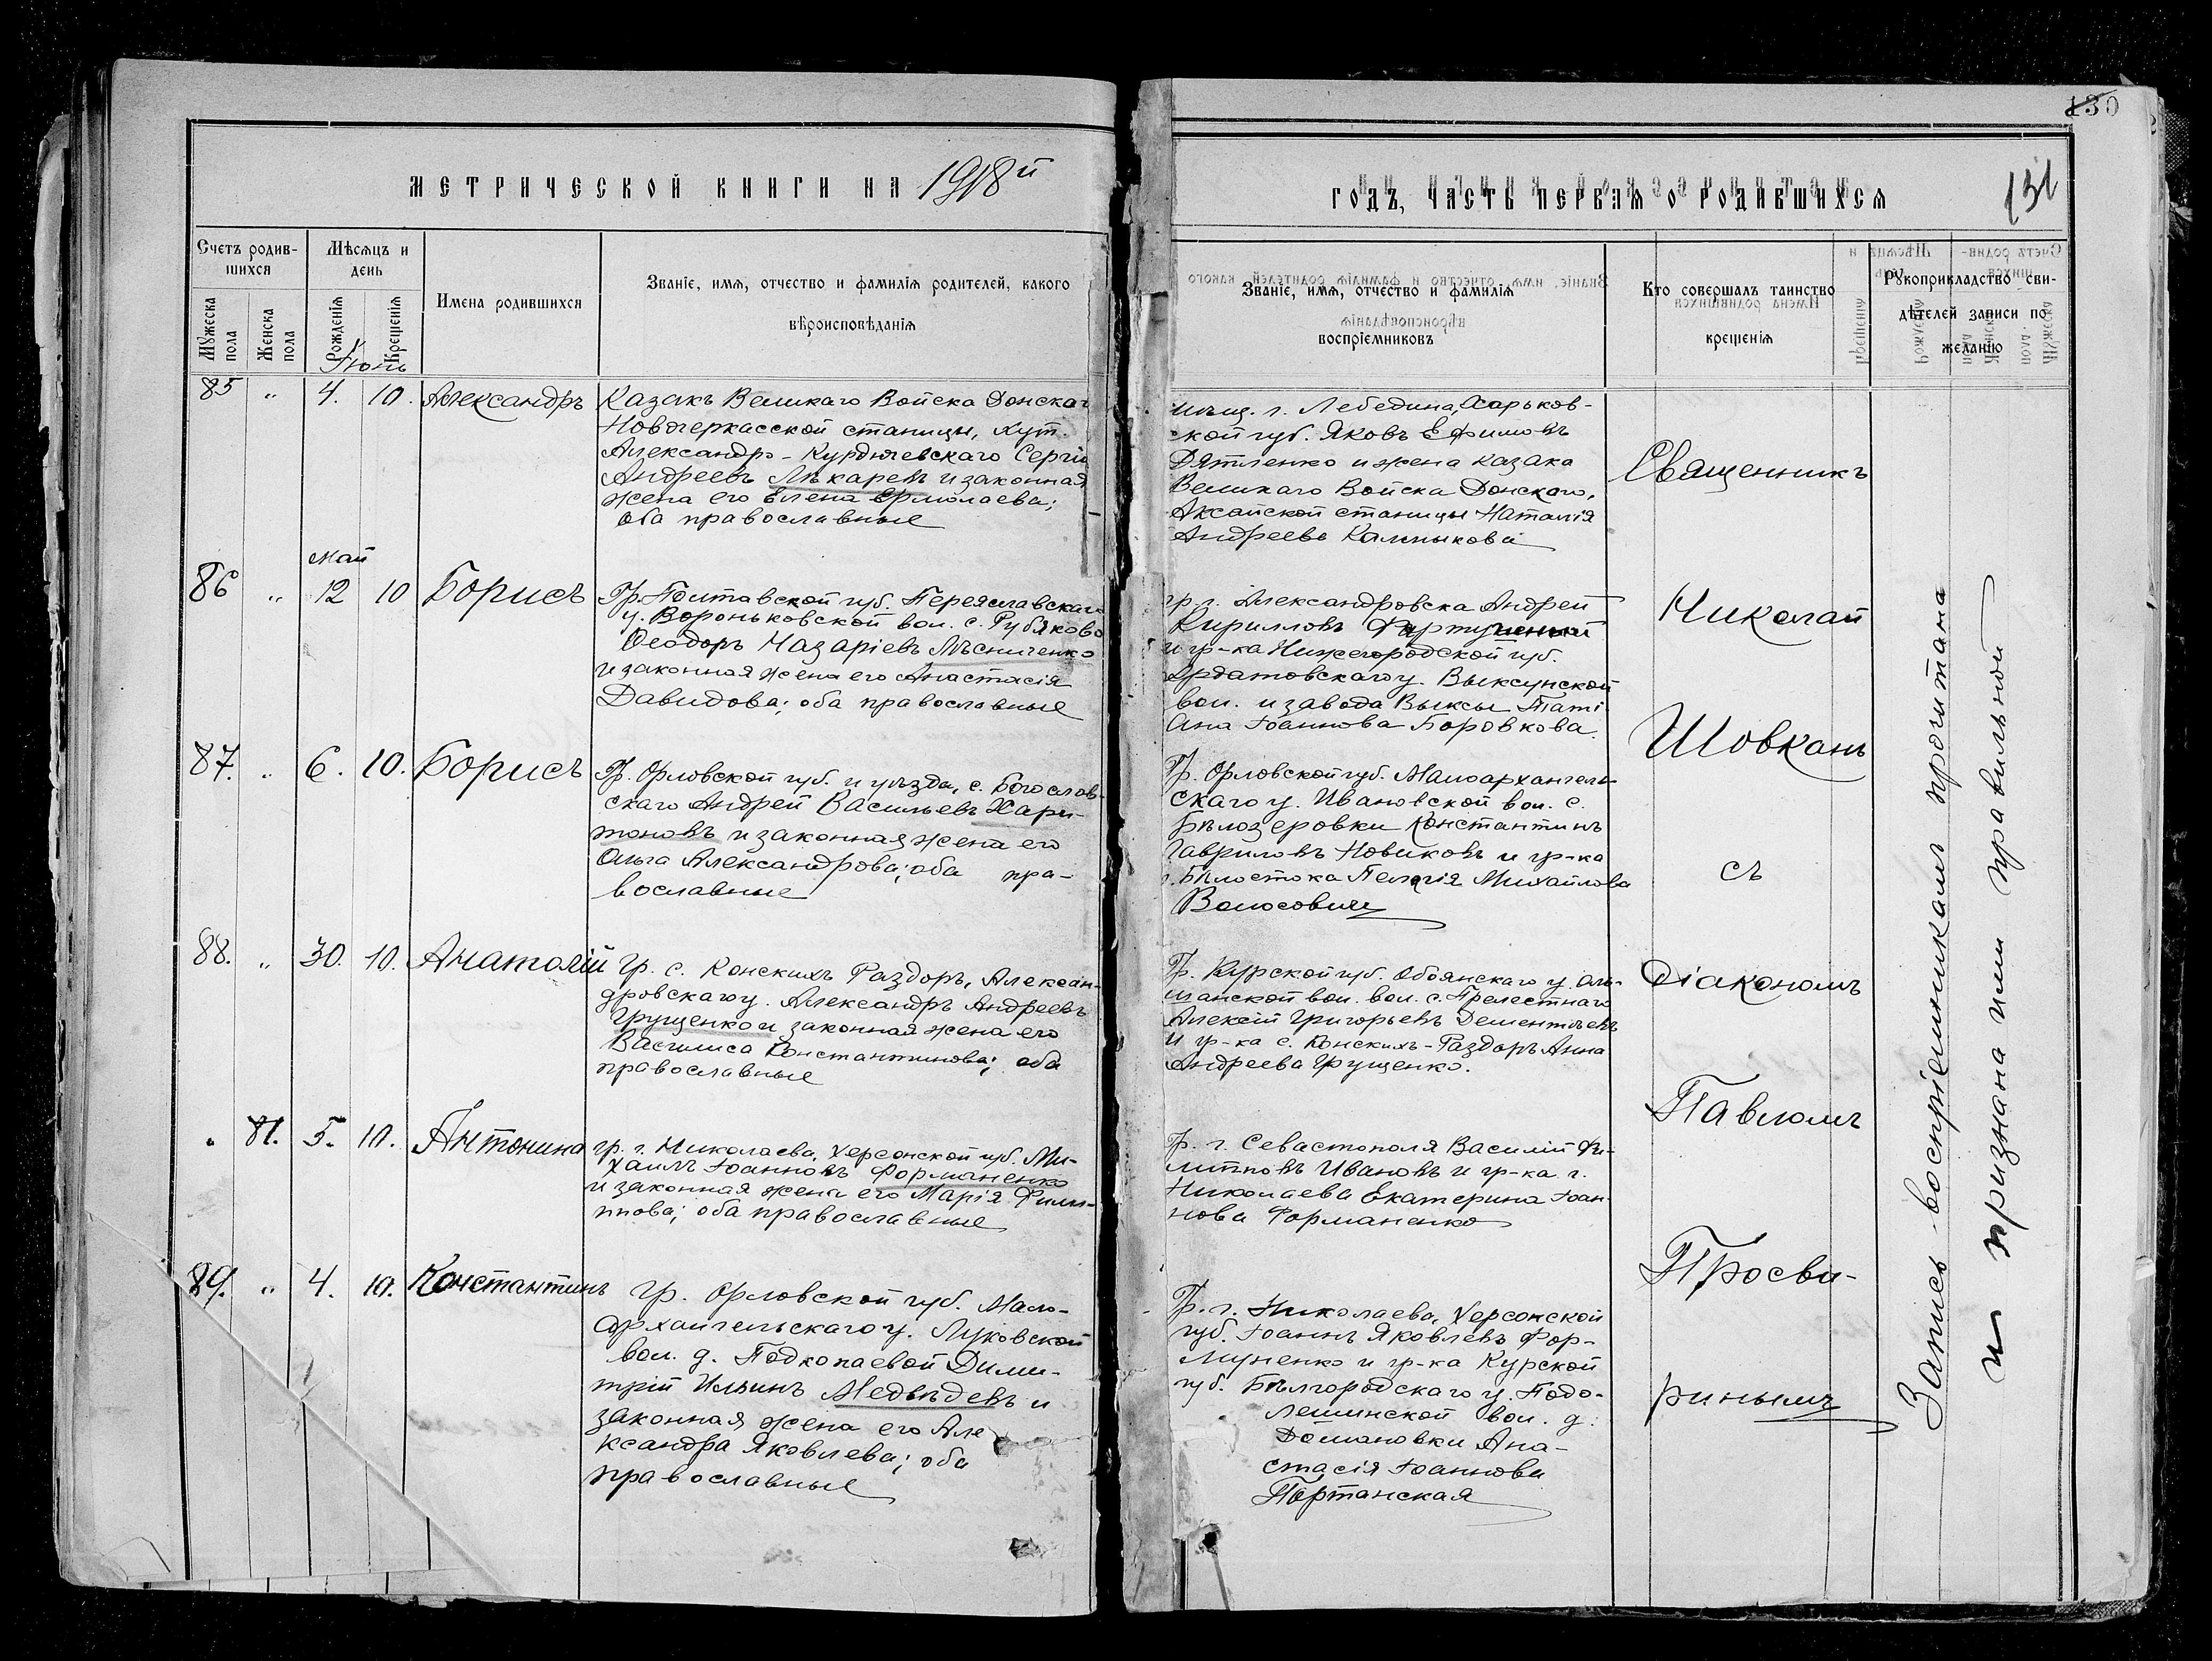 МЕТРИЧЕСКОЙ КНИГИ НА 1918й
Счетъ родив-
шихся
Мужеска
пола
Женска
пола
Мѣсяцъ и
день
Рожденія
Крещенія
Имена родившихся
Званіе, имя, отчество и фамилія родителей, какого
вѣроисповѣданія
Іюнь
85 " 4. 10. Александръ
Казакъ Великаго Войска Донскаго
Новочеркасской станицы, хут.
Александро-Курдючевскаго Сергій
Андреевъ Лѣкаревъ и законная
жена его Елена Ермолаева;
оба православные
Май
86 " 12 10 Борисъ
Гр. Полтавской губ. Переяславскаго
у. Вороньковской вол. с.
Ѳеодоръ Назаріевъ Лѣсниченко
и законная жена его Анастасія
Давидова; оба православные
87. " 6. 10. Борисъ
Гр. Орловской губ. и уѣзда, с. Богослов-
скаго Андрей Васильевъ Хари-
тоновъ и законная жена его
Ольга Александрова; оба пра-
вославные
88. " 30. 10. Анатолій
Гр. с. Конскихъ Раздоръ, Алексан-
дровскаго у. Александръ Андреевъ
Грущенко и законная жена его
Василиса Константинова; оба
православные
" 81. 5. 10. Антонина
гр. г. Николаева, Херсонской губ. Ми-
хаилъ Іоанновъ Форманенко
и законная жена его Марія Филип-
пова; оба православные
89. " 4. 10. Константинъ
гр. Орловской губ. Мало-
архангельскаго у. Луковской
вол. д. Подкопаевой Дими-
трій Ильинъ Медвѣдевъ и
законная жена его Але
ксандра Яковлева; оба
православные
130
131
ГОДЪ, ЧАСТЬ ПЕРВАЯ О РОДИВШИХСЯ
Званіе, имя, отчество и фамилія
воспріемниковъ
Кто совершалъ таинство
крещенія
Рукоприкладство сви-
дѣтелей записи по
желанію
мѣщ. г. Лебедина, Харьков-
ской губ. Яковъ Ефимовъ
Дятленко и жена казака
Великаго Войска Донскаго,
Аксайской станицы Наталія
Андреева Калмыкова
гр. г. Александровска Андрей
Кирилловъ
и гр-ка Нижегородской губ.
Ардатовскаго у. Выксунской
вол. и завода Выксы Тати
ана Іоаннова Боровкова.
Гр. Орловской губ. Малоархангель-
скаго у. Ивановской вол. с.
Бѣлозеровки Константинъ
Гавриловъ Новиковъ и гр-ка
г. Бѣлостока Пелагія Михайлова
Волосовичъ
Гр. Курской губ. Обоянскаго у.
вол. вол. с. Прелестнаго
Алексій Григорьевъ Дементьевъ
и гр-ка с. Конскихъ-Раздоръ Анна
Андреева Грущенко.
Гр. г. Севастополя Василій Фи-
липповъ Ивановъ и гр-ка г.
Николаева Екатерина Іоан-
нова Форманенко
Гр. г. Николаева, Херсонской
губ. Іоаннъ Яковлевъ Фор-
маненко и гр-ка Курской
губ. Бѣлгородскаго у.
вол. д.
Ана-
стасія Іоаннова
Портанская
Священникъ
Николай
Шовкань
съ
діакономъ
Павломъ
Просви-
ринымъ
Запись воспріемникамъ прочитана
и признана ими правильной